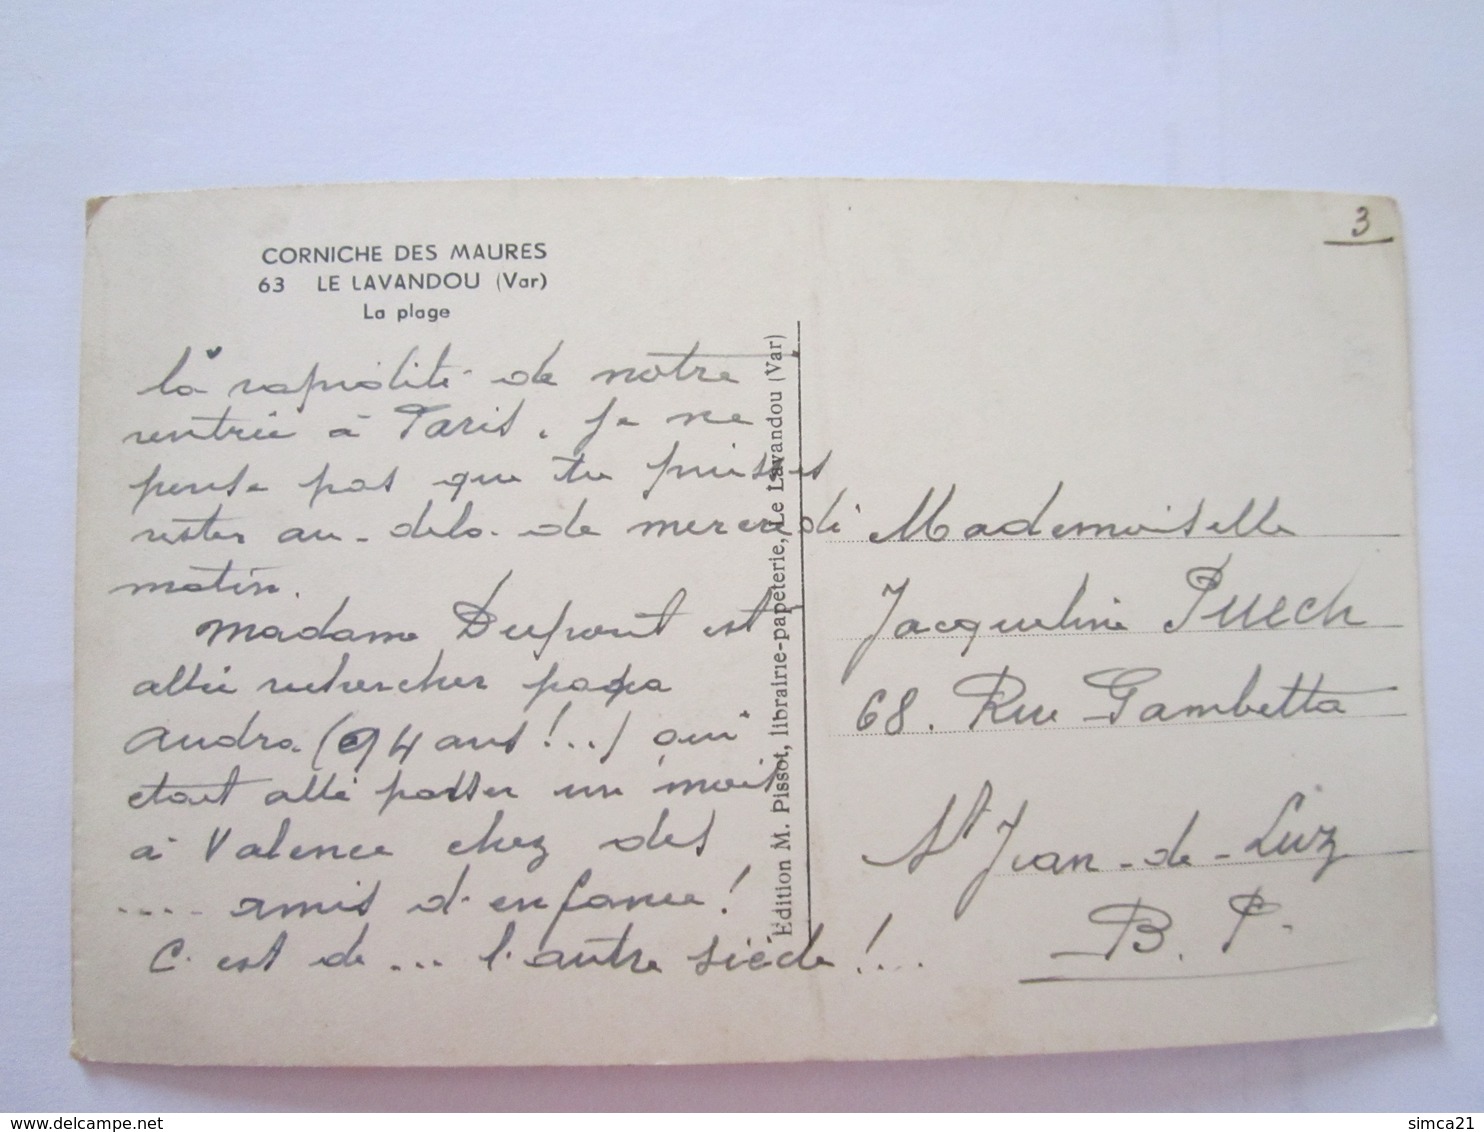 CORNICHE DES MAURES
63 LE LAVANDOU (Var)
La plage
3
la rapidité de notre
rentrée à Paris. Je ne
pense pas que tu puisses
rester au-delà de mercredi
matin.
Madame Dupont est
allée rechercher papa
André (94 ans!...) qui
était allé passer un mois
à Valence chez des
.... amis d'enfance!
C'est de ... l'autre siècle!...
Edition M. Pissot, librairie-papeterie, Le Lavandou (Var)
Mademoiselle
Jacqueline Puech
68. Rue Gambetta
St Jean-de-Luz
B. P.
delcampe.net
simca21